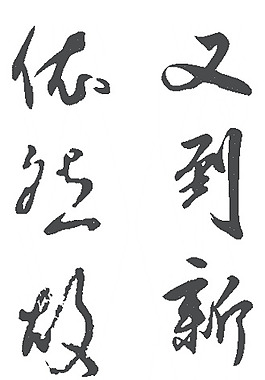 又到新
依然故